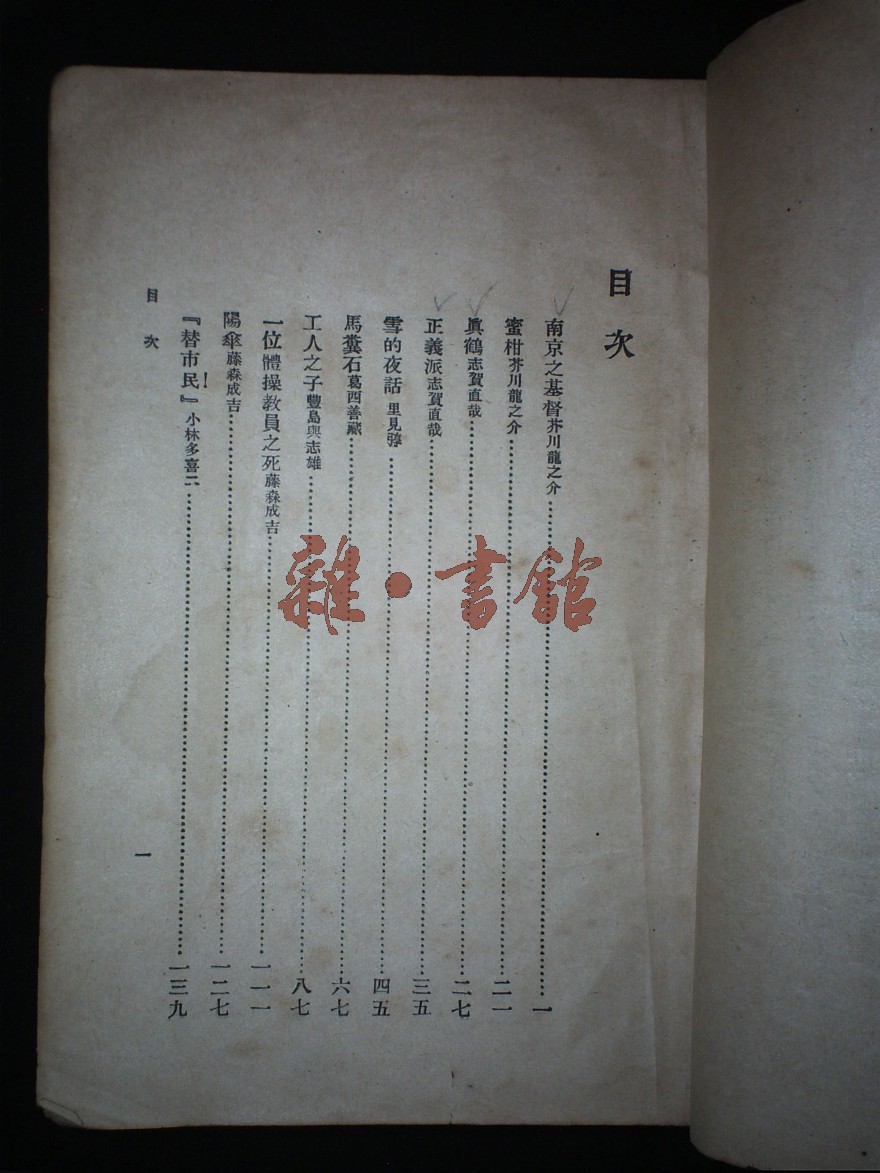 目次
南京之基督芥川龍之介……一
蜜柑芥川龍之介……二一
眞鶴志賀直哉……二七
正義派志賀直哉……三五
雪的夜話里見弴……四五
馬糞石葛西善藏……六七
工人之子豐島與志雄……八七
一位體操教員之死藤森成吉……一一一
陽傘藤森成吉……一二七
『替市民！』小林多喜二……一三九
目次
一
雜·書館